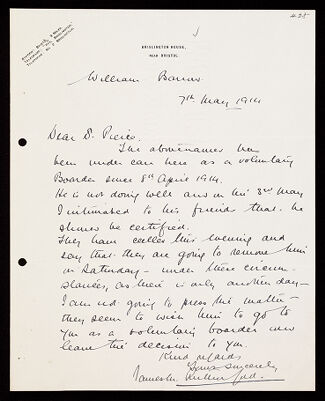 425
BRISLINGTON HOUSE,
NEAR BRISTOL.
William Barnes
7th May 1914
Dear Dr. Pierce.
The abovenamed has
been under care here as a voluntary
Boarder since 8th April 1914.
He is not doing well and on the 3rd May
I intimated to his friends that he
should be certified.
They have called this evening and
say that they are going to remove him
on Saturday - under these circum-
stances, as there is only another day -
I am not going to press the matter -
they seem to wish him to go to
you as a voluntary boarder and
leave the decision to you.
Kind regards
Yours sincerely
Rutherford.